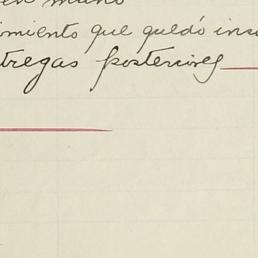 en mano
omiento que quedó ins
tregas posteriores